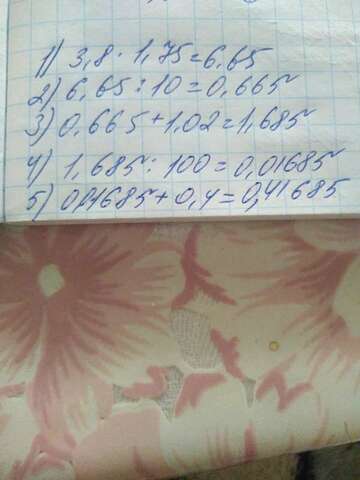 1) 3,8 · 1,75 = 6,65
2) 6,65 : 10 = 0,665
3) 0,665 + 1,02 = 1,685
4) 1,685 : 100 = 0,01685
5) 0,01685 + 0,4 = 0,41685